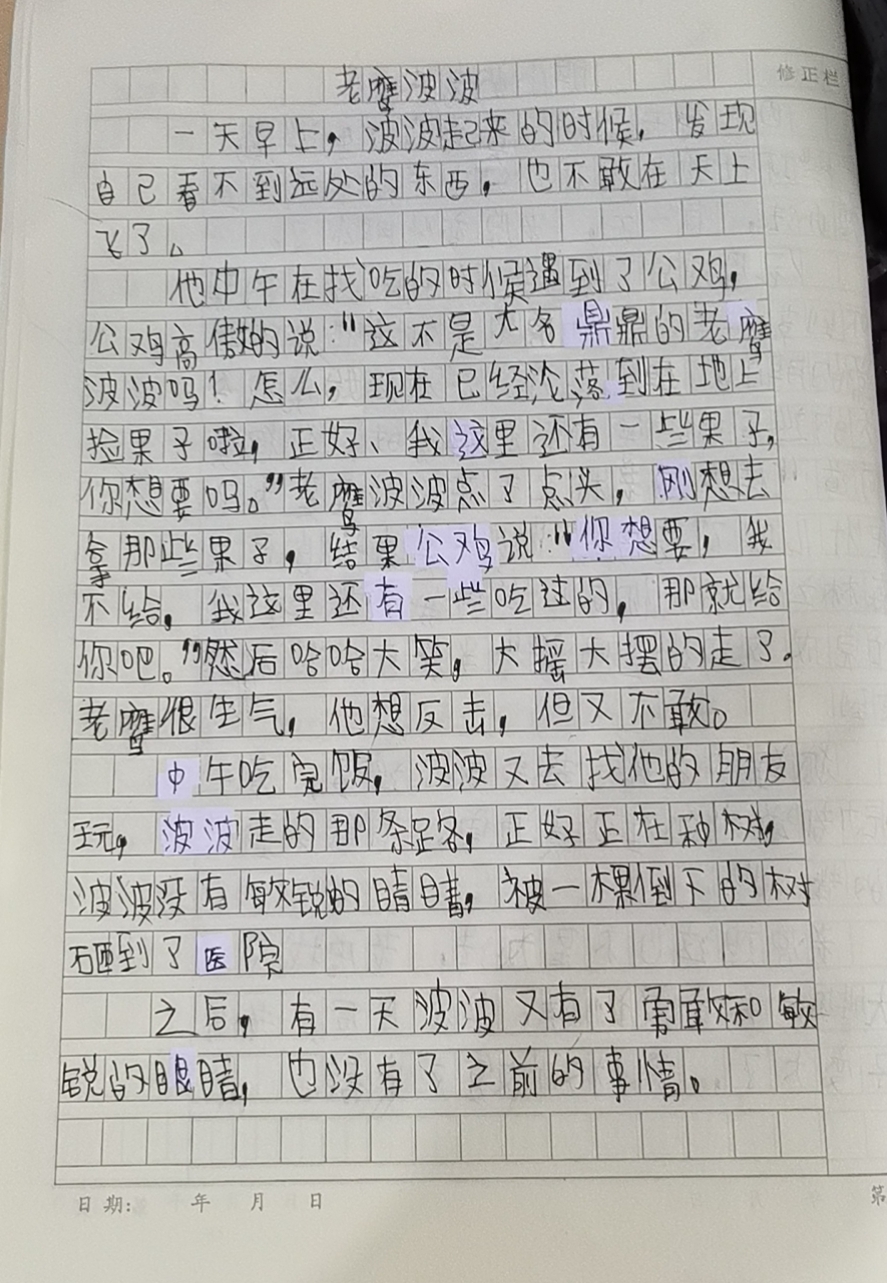 修正栏
老鹰波波
一天早上，波波起来的时候，发现
自己看不到远处的东西，也不敢在天上
飞了。
他中午在找吃的时候遇到了公鸡，
公鸡高傲的说："这不是大名鼎鼎的老鹰
波波吗！怎么，现在已经沦落到在地上
捡果子啦，正好、我这里还有一些果子，
你想要吗。"老鹰波波点了点头，刚想去
拿那些果子，结果公鸡说："你想要，我
不给，我这里还有一些吃过的，那就给
你吧。"然后哈哈大笑，大摇大摆的走了。
老鹰很生气，他想反击，但又不敢。
中午吃完饭，波波又去找他的朋友
玩，波波走的那条路，正好正在种树，
波波没有敏锐的睛睛，被一棵倒下的树
砸到了医院
之后，有一天波波又有了勇敢和敏
锐的眼睛，也没有了之前的事情。
日期： 年 月 日
第